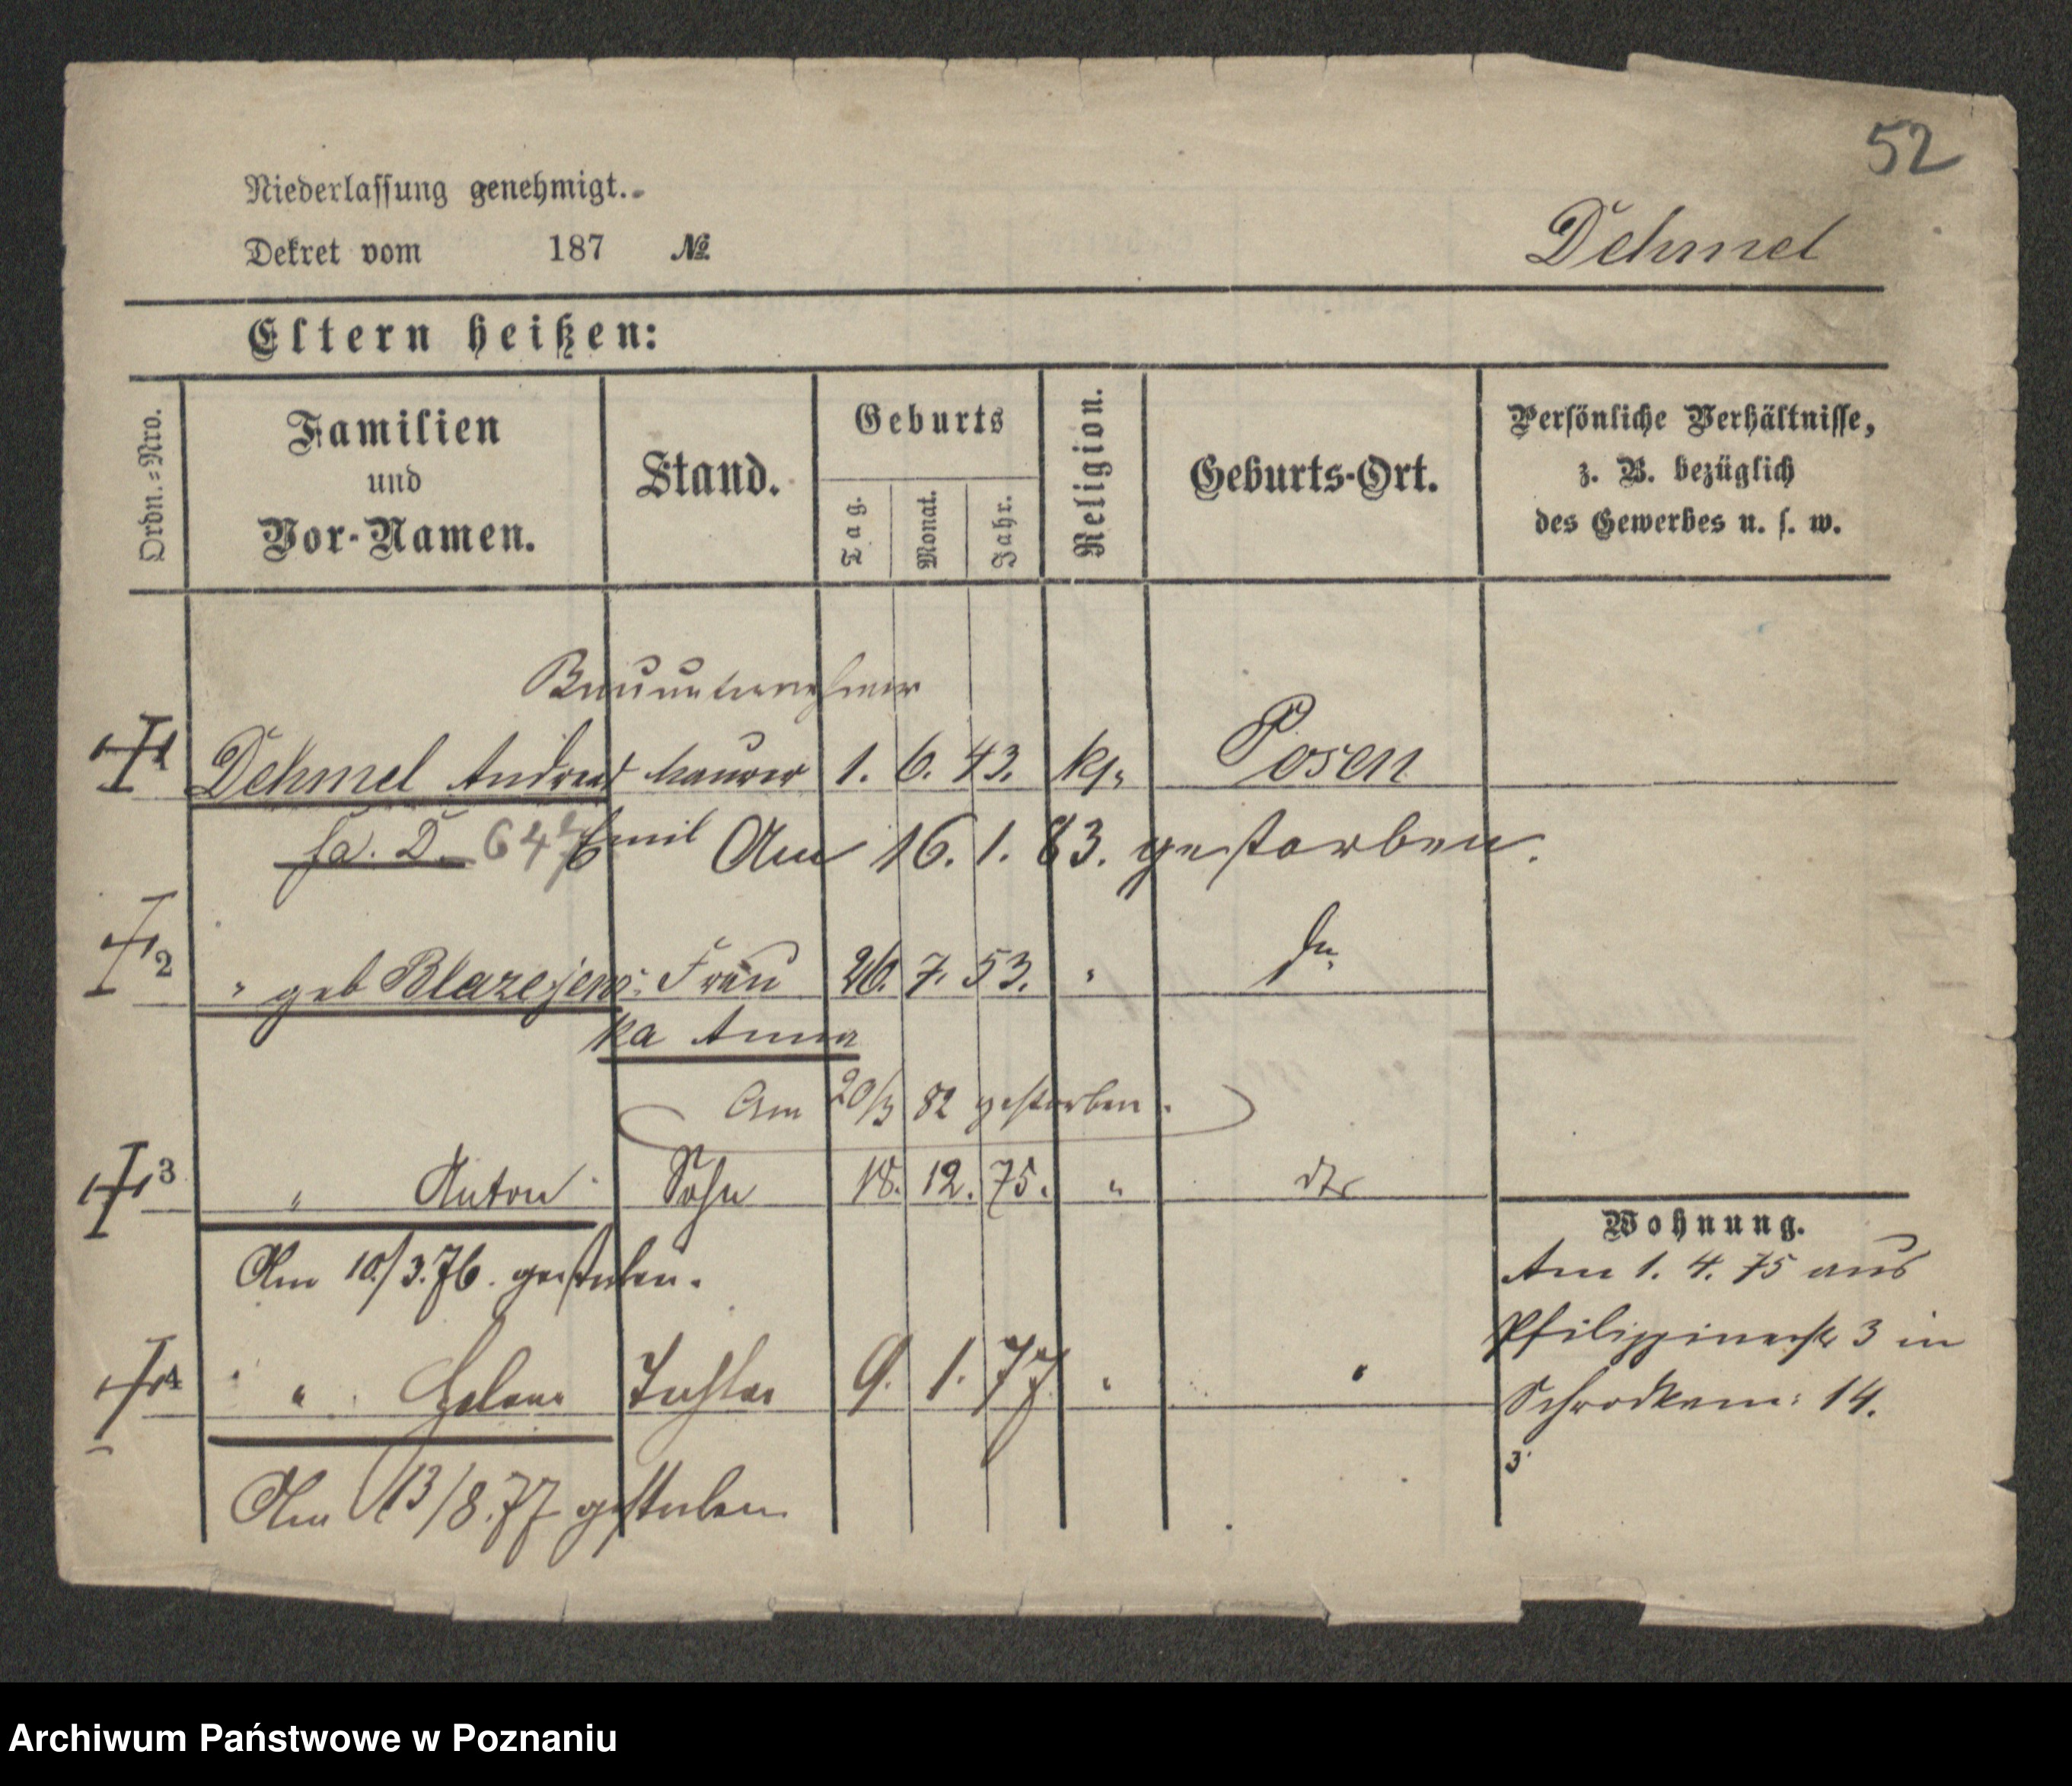 52
Niederlassung genehmigt.
Dekret vom 187 №
Dehmel
Eltern heißen:
Ordn.=Nro.
Familien
und
Vor-Namen.
Stand.
Geburts
Tag.
Monat.
Jahr.
Religion.
Geburts-Ort.
Persönliche Verhältnisse,
z. B. bezüglich
des Gewerbes u. s. w.
Bauunternehmer
1 Dehmel Andreas Maurer 1. 6. 43. kt. Posen
fa. D. 64 Emil Am 16. 1. 83. gestorben.
2 " geb Blazejews- Frau 26. 7. 53. " do
ka Anna
Am 20/3 82 gestorben.
3 " Anton Sohn 18. 12. 75. " dto
Am 10./3.76. gestorben.
4 " Helene Tochter 9. 1. 77 " "
Am 13/8.77 gestorben
Wohnung.
Am 1. 4. 75 aus
Philippinerstr 3 in
Schrodkam: 14.
3
Archiwum Państwowe w Poznaniu